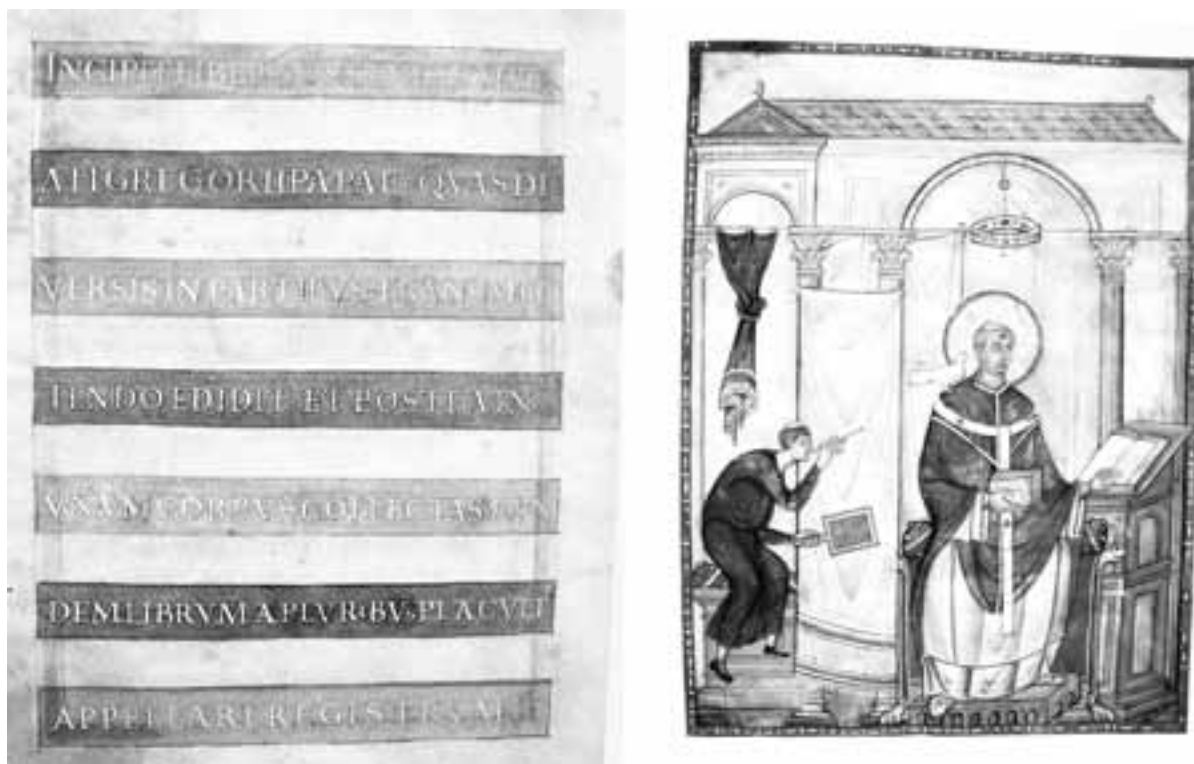 INCIPIT LIBER
ATI GREGORII PAPAE QVAS DI
VERSIS IN PARTIBVS
TENDO EDIDIT ET POSTEA IN
VNVM CORPVS COLLECTAS EVN
DEM LIBRVM A PLVRIBVS PLACVIT
APPELLARI REGISTRVM